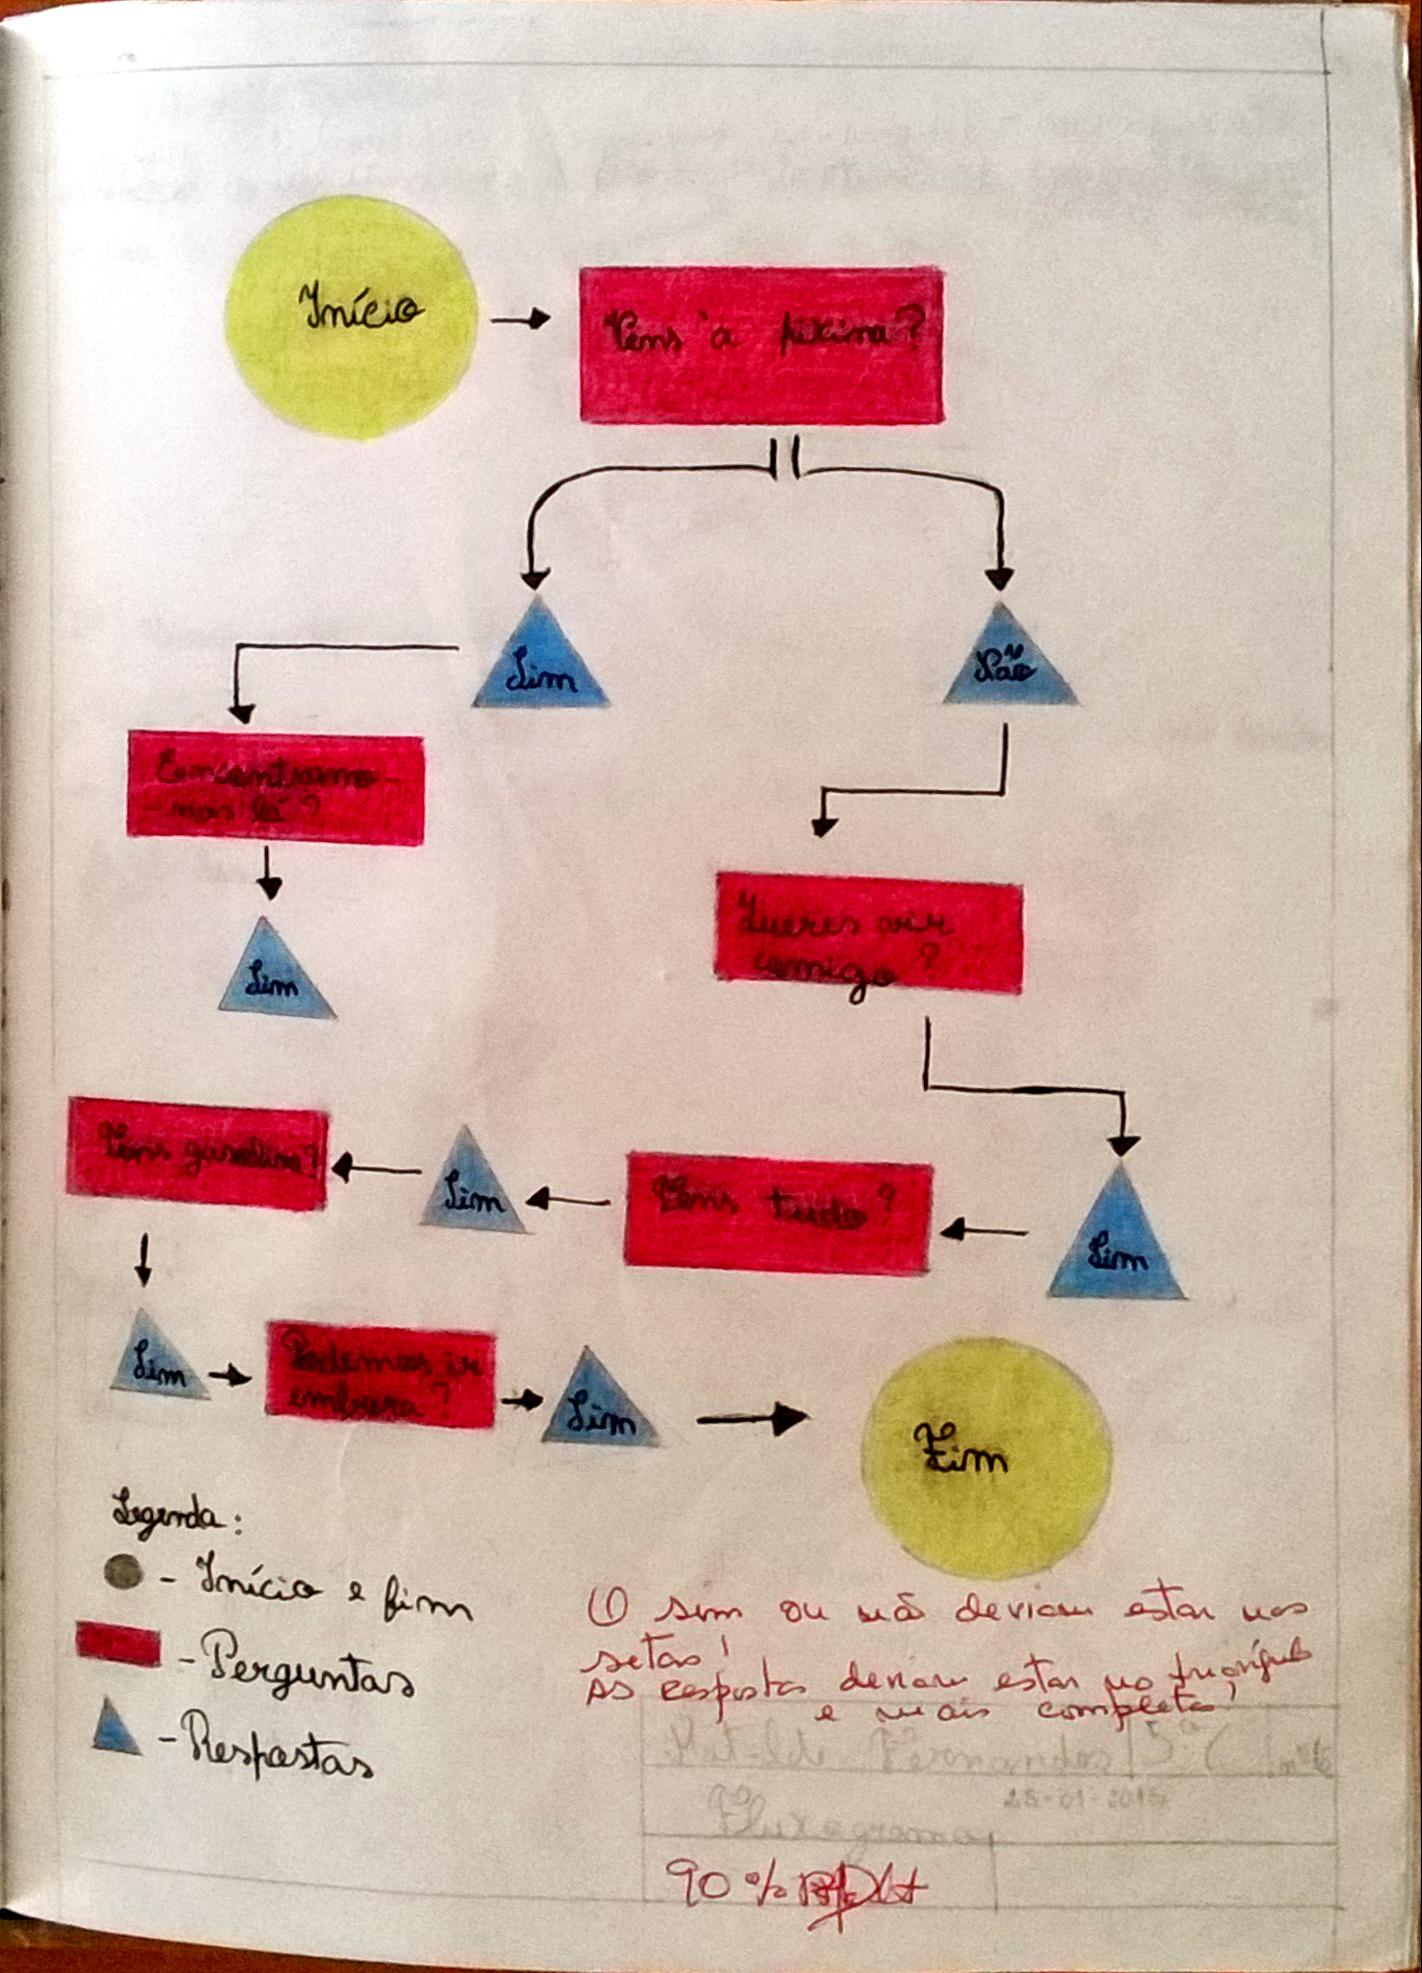 Início
Vens à pixina?
Sim
Não
Encontramo
-nos lá?
Sim
Queres vir
comigo?
Sim
Tens tudo?
Sim
Tens gasolina?
Sim
Podemos ir
embora?
Sim
Fim
Legenda:
- Início e fim
- Perguntas
- Respostas
O sim ou não deviam estar nas
setas!
As respostas deviam estar no triângulo
e mais completas!
Matilde Fernandes 5º C
Fluxograma
90%